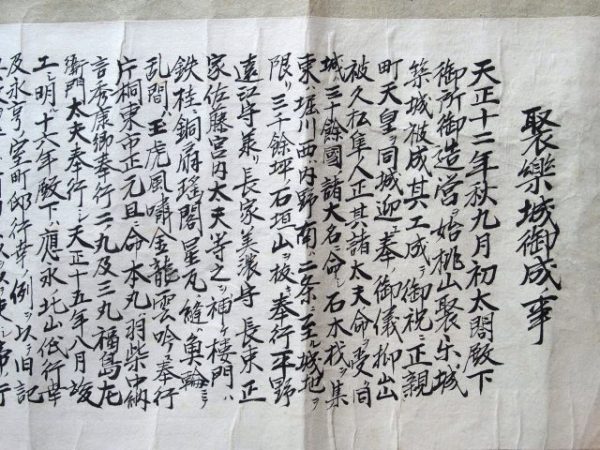 聚樂城御成事
天正十二年秋九月初太閤殿下
御所御造営ヲ始桃山聚乐城
築城被成其工成テ御祝ニ正親
町天皇ヲ同城迎エ奉ノ御儀抑出
被久松隼人正其諸太夫命ヲ受同
城三十餘國諸大名ニ命シ石木找ヲ集
東ハ堀川西ハ内野南ハ二条ニ至ル城地ヲ
限リ三千餘坪石垣山ヲ抜キ奉行平野
遠江守兼リ長家美濃守長東正
家佐藤宮内太夫等之ヲ神ケ楼門ハ
鉄桂銅扉瑶閣星瓦ノ縫ハ奐輪ニテ
乱間ハ玉虎風嘯金龍雲吟ユ奉行
片桐東市正元且ニ命本丸ハ羽柴中納
言秀康卿奉行二ノ丸及三丸福島左
衛門太夫奉行シテ天正十五年八月竣
工シ明十六年殿下ハ應永北山佐行幸
及永亨室町邸行幸ノ例ヲ以テ旧記